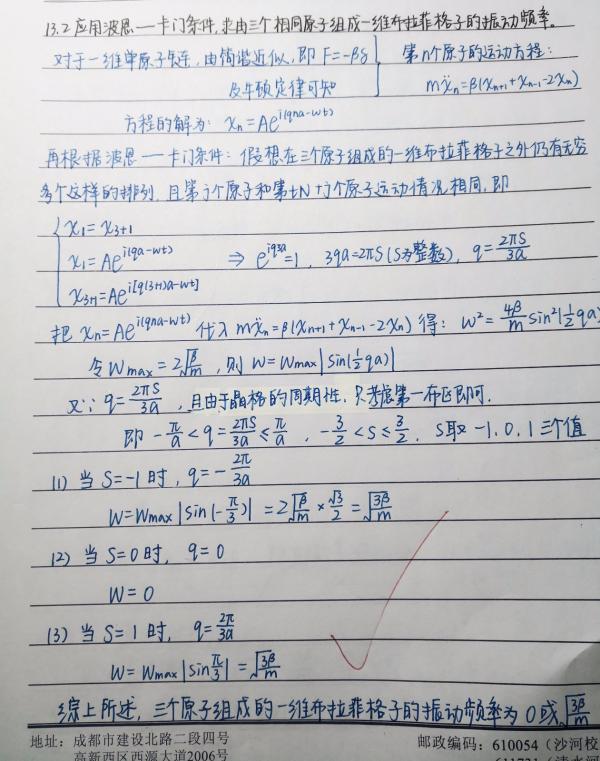 13.2 应用波恩—卡门条件,求由三个相同原子组成一维布拉菲格子的振动频率。
对于一维单原子链,由简谐近似,即 F=-βδ
及牛顿定律可知
第n个原子的运动方程:
mẍₙ=β(xₙ₊₁+xₙ₋₁-2xₙ)
方程的解为: xₙ=Ae^{i(qna-wt)}
再根据波恩—卡门条件:假想在三个原子组成的一维布拉菲格子之外仍有无穷
多个这样的排列,且第j个原子和第tN+j个原子运动情况相同,即
x₁=x₃₊₁
x₁=Ae^{i(qa-wt)} ⇒ e^{iq3a}=1, 3qa=2πS (S为整数), q=2πS/3a
x₃₊₁=Ae^{i[q(3+1)a-wt]}
把 xₙ=Ae^{i(qna-wt)} 代入 mẍₙ=β(xₙ₊₁+xₙ₋₁-2xₙ) 得: w²=4β/m sin²(½qa)
令 Wmax=2√(β/m), 则 W=Wmax|sin(½qa)|
又∵ q=2πS/3a, 且由于晶格的周期性,只考虑第一布区即可.
即 -π/a<q=2πS/3a≤π/a, -3/2<S≤3/2, S取-1,0,1三个值
(1) 当 S=-1 时, q=-2π/3a
W=Wmax|sin(-π/3)|=2√(β/m)×√3/2=√(3β/m)
(2) 当 S=0 时, q=0
W=0
(3) 当 S=1 时, q=2π/3a
W=Wmax|sin π/3|=√(3β/m)
综上所述,三个原子组成的一维布拉菲格子的振动频率为 0 或 √(3β/m)
地址: 成都市建设北路二段四号 邮政编码: 610054 (沙河校
高新西区西源大道2006号 611731